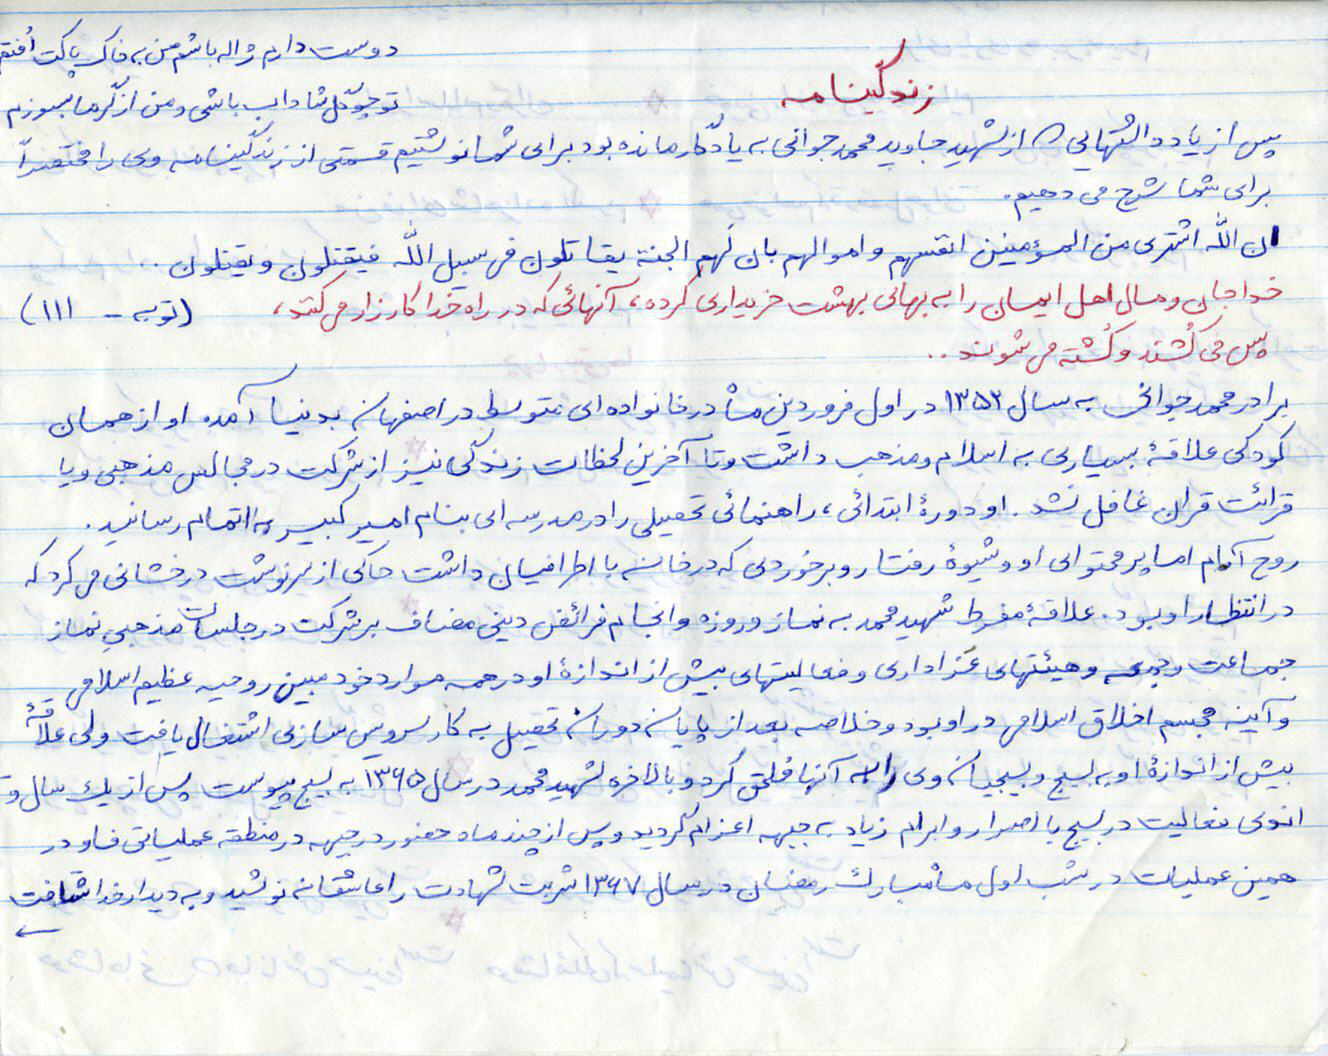 دوست دارم ژاله باشم من به خاک پاکت اُفتم
زندگینامه
تو چو گل شاداب باشی و من از گرما بسوزم
پس از یادداشتهایی که از شهید جاوید محمد جوانی به یادگار مانده بود برای شما نوشتیم قسمتی از زندگینامه وی را مختصراً
برای شما شرح می دهیم.
ان اللّه اشتری من المؤمنین انفسهم و اموالهم بان لَهم الجنة یقاتلون فی سبیل اللّه فیقتلون و یقتلون .
خدا جان و مال اهل ایمان را به بهائی بهشت خریداری کرده، آنهائی که در راه خدا کارزار می کنند، (توبه - ۱۱۱)
پس می کُشند و کُشته می شوند..
برادر محمد جوانی به سال ۱۳۵۲ در اول فروردین ماه در خانواده ای متوسط در اصفهان بدنیا آمد. او از همان
کودکی علاقهٔ بسیاری به اسلام و مذهب داشت و تا آخرین لحظات زندگی نیز از شرکت در مجالس مذهبی و یا
قرائت قران غافل نشد. او دورهٔ ابتدائی، راهنمائی تحصیلی را در مدرسه ای بنام امیر کبیر به اتمام رسانید.
روح آرام اما پر محتوای او و شیوهٔ رفتار و برخوردی که در خانه با اطرافیان داشت حاکی از سرنوشت درخشانی می کرد که
در انتظار او بود. علاقهٔ مفرط شهید محمد به نماز و روزه و انجام فرائض دینی مضاف بر شرکت در جلسات مذهبی نماز
جماعت و جمعه و هیئتهای عزاداری و فعالیتهای بیش از اندازهٔ او در همه موارد خود مبین روحیه عظیم اسلامی
و آینه مجسم اخلاق اسلامی در او بود و خلاصه بعد از پایان دوران تحصیل به کار سرویس سازی اشتغال یافت ولی علاقهٔ
بیش از اندازهٔ او به بسیج و بسیجیان وی را به آنها ملحق کرد و بالاخره شهید محمد در سال ۱۳۶۵ به بسیج پیوست پس از یک سال و
اندی فعالیت در بسیج با اصرار و ابرام زیاد به جبهه اعزام گردید و پس از چند ماه حضور در جبهه در منطقه عملیاتی فاو در
همین عملیات در شب اول ماه مبارک رمضان در سال ۱۳۶۷ شربت شهادت را عاشقانه نوشید و به دیدار خدا شتافت